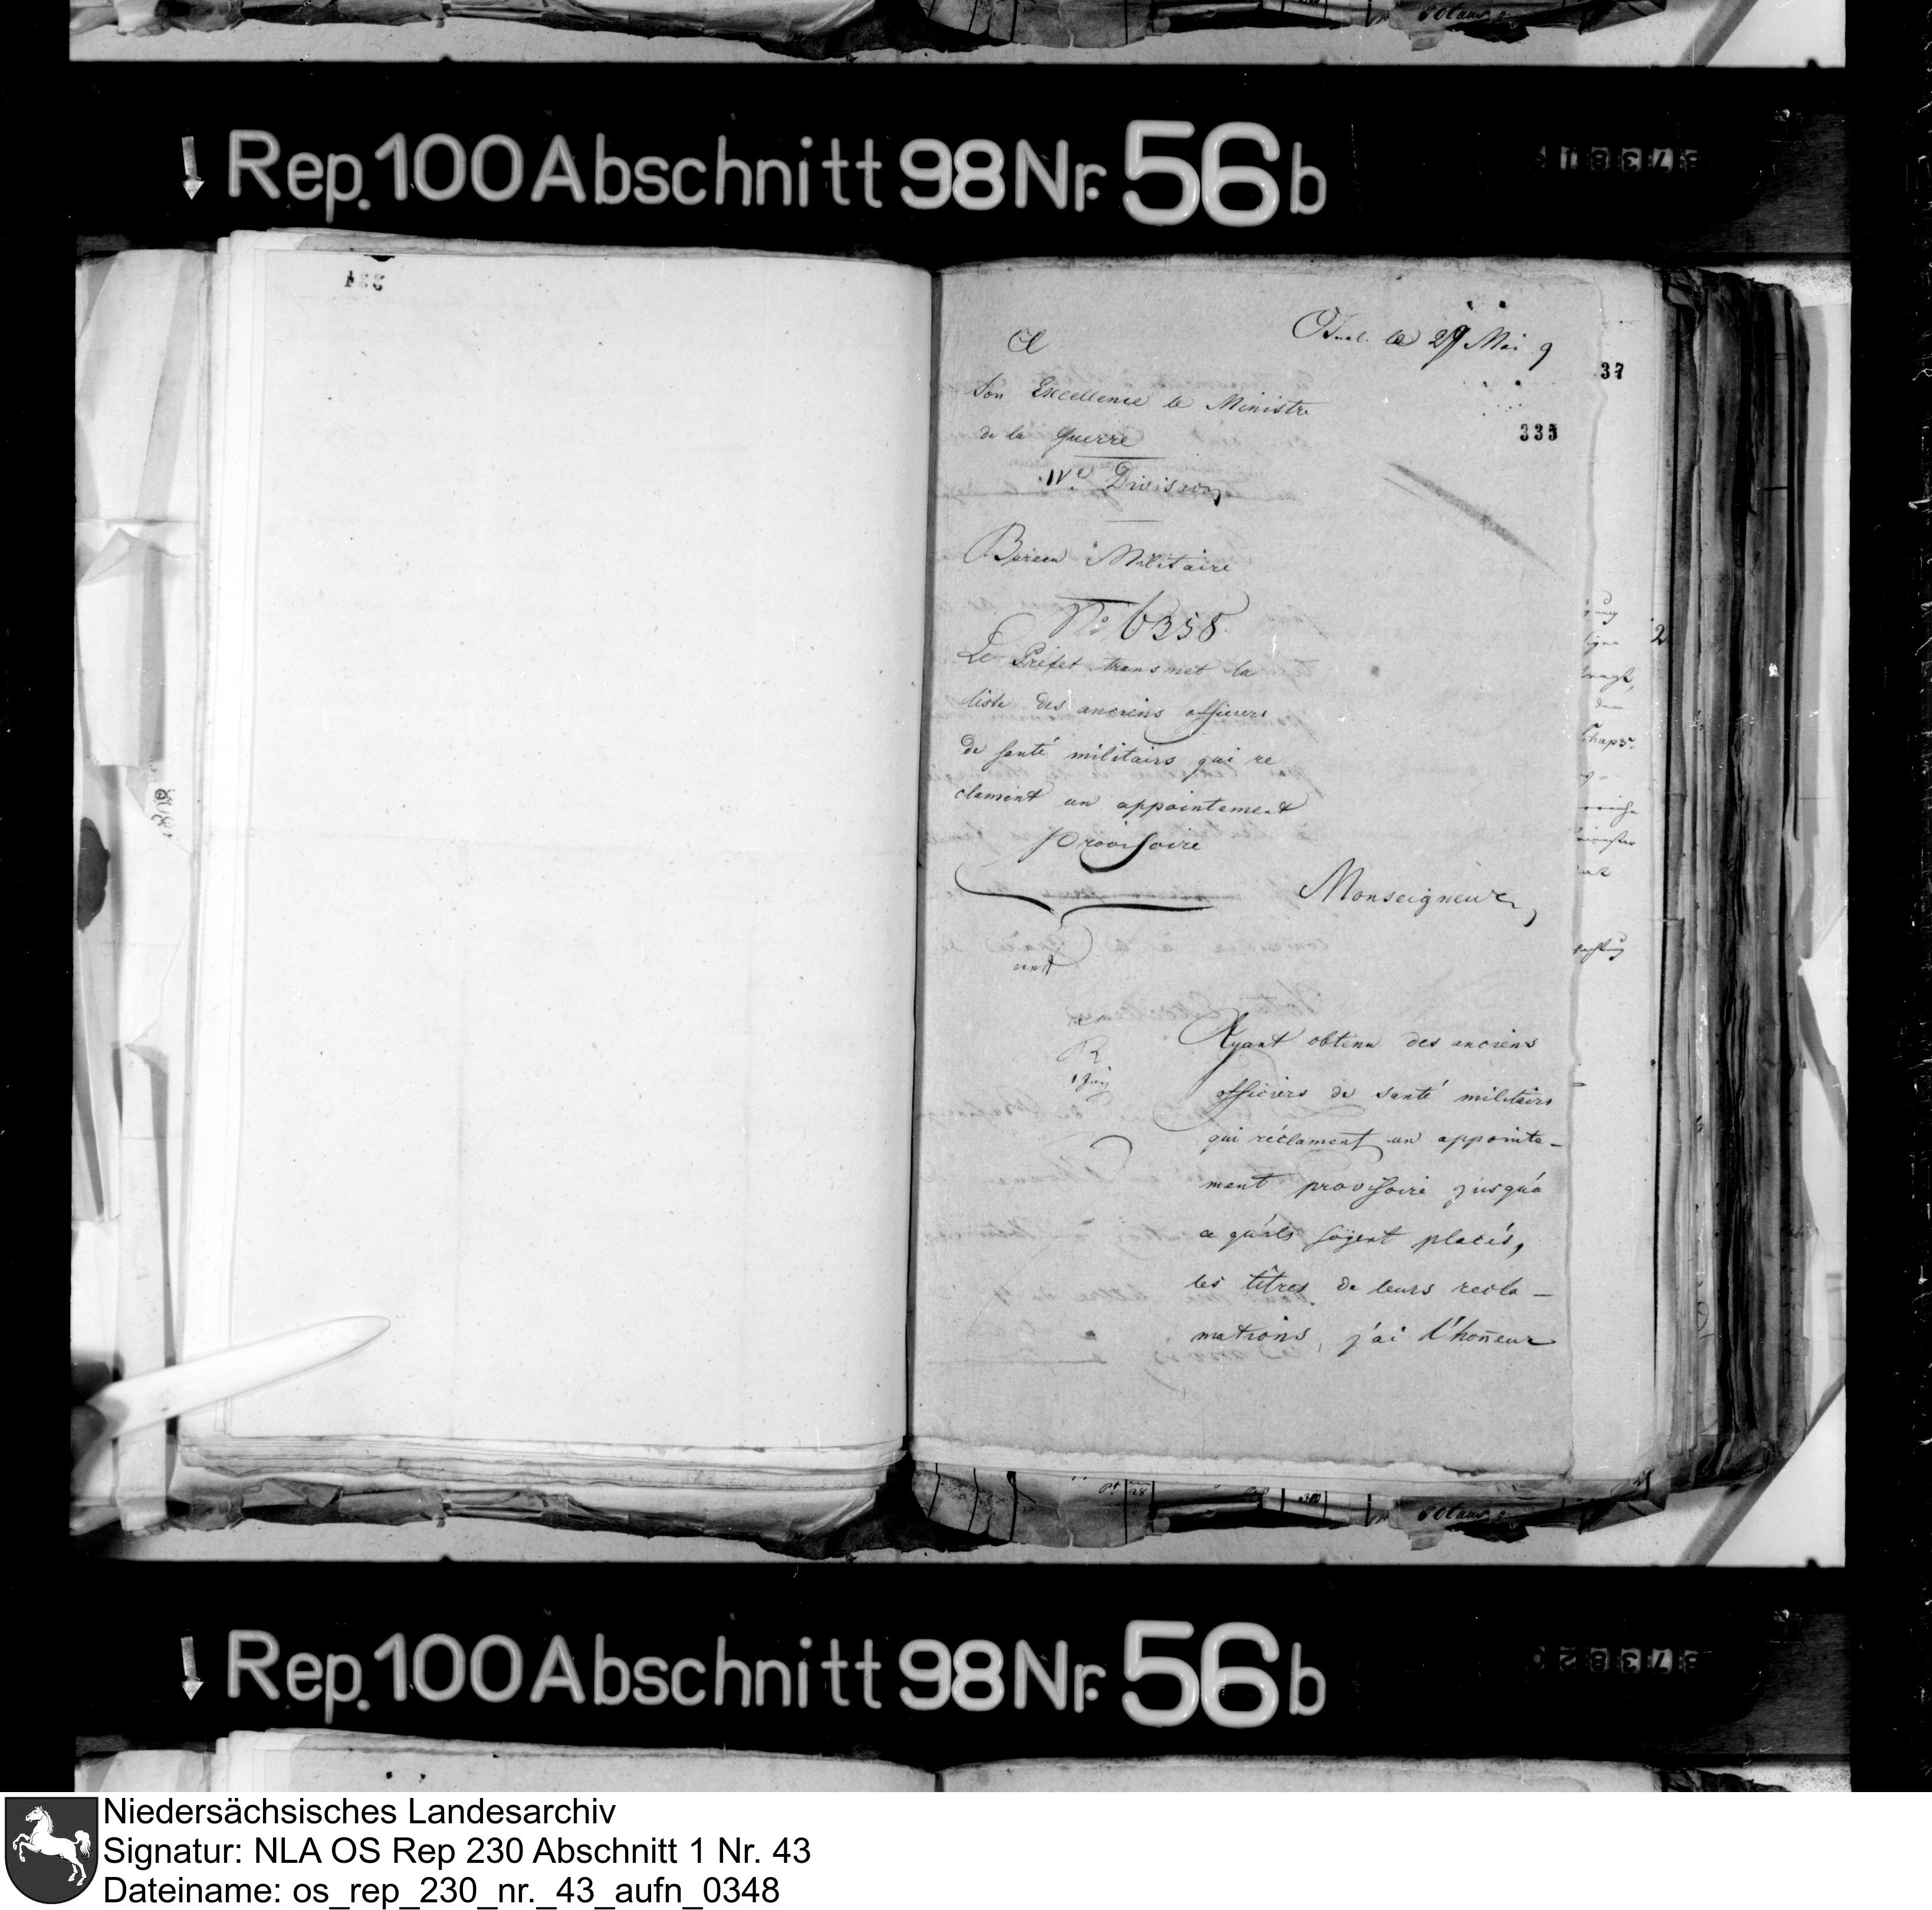 Rep. 100 Abschnitt 98 Nr. 56 b
Osnab. le 29 Mai 9
37
335
A
Son Excellence le Ministre
de la Guerre
IVe Division
Bureau Militaire
No 6358
Le Préfet transmet la
liste des anciens officiers
de santé militairs qui re
clament un appointement
provisoire
Monseigneur,
Ayant obtenu des anciens
officiers de santé militairs
qui réclament un appointe-
ment provisoire jusqu'a
ce qu'ils soyent placés,
les tîtres de leurs recla-
mations, j'ai l'honneur
Rep. 100 Abschnitt 98 Nr. 56 b
Niedersächsisches Landesarchiv
Signatur: NLA OS Rep 230 Abschnitt 1 Nr. 43
Dateiname: os_rep_230_nr._43_aufn_0348